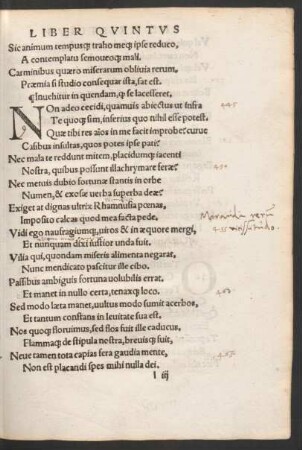 LIBER QVINTVS
Sic animum tempusq; traho meq; ipse reduco,
A contemplatu semoueoq; mali.
Carminibus quæro miserarum obliuia rerum,
Præmia si studio consequar ista, sat est.
¶Inuehitur in quendam, q̃ se lacesseret.
NOn adeo cecidi, quamuis abiectus ut infra
Te quoq; sim, inferius quo nihil esse potest.
Quæ tibi res aĩos in me facit improbe? curue
Casibus insultas, quos potes ipse pati?
Nec mala te reddunt mitem, placidumq; iacenti
Nostra, quibus possunt illachrymare feræ?
Nec metuis dubio fortunæ stantis in orbe
Numen, & exosæ uerba superba deæ?
Exiget at dignas ultrix Rhamnusia pœnas,
Imposito calcas quod mea facta pede.
Vidi ego naufragiumq;, uiros & in æquore mergi,
Et nunquam dixi iustior unda fuit.
Vilia qui, quondam miseris alimenta negarat,
Nunc mendicato pascitur ille cibo.
Passibus ambiguis fortuna volubilis errat,
Et manet in nullo certa, tenaxq; loco.
Sed modo læta manet, uultus modo sumit acerbos,
Et tantum constans in leuitate sua est.
Nos quoq; floruimus, sed flos fuit ille caducus,
Flammaq; de stipula nostra, breuisq; fuit,
Neue tamen tota capias fera gaudia mente,
Non est placandi spes mihi nulla dei.
l iij